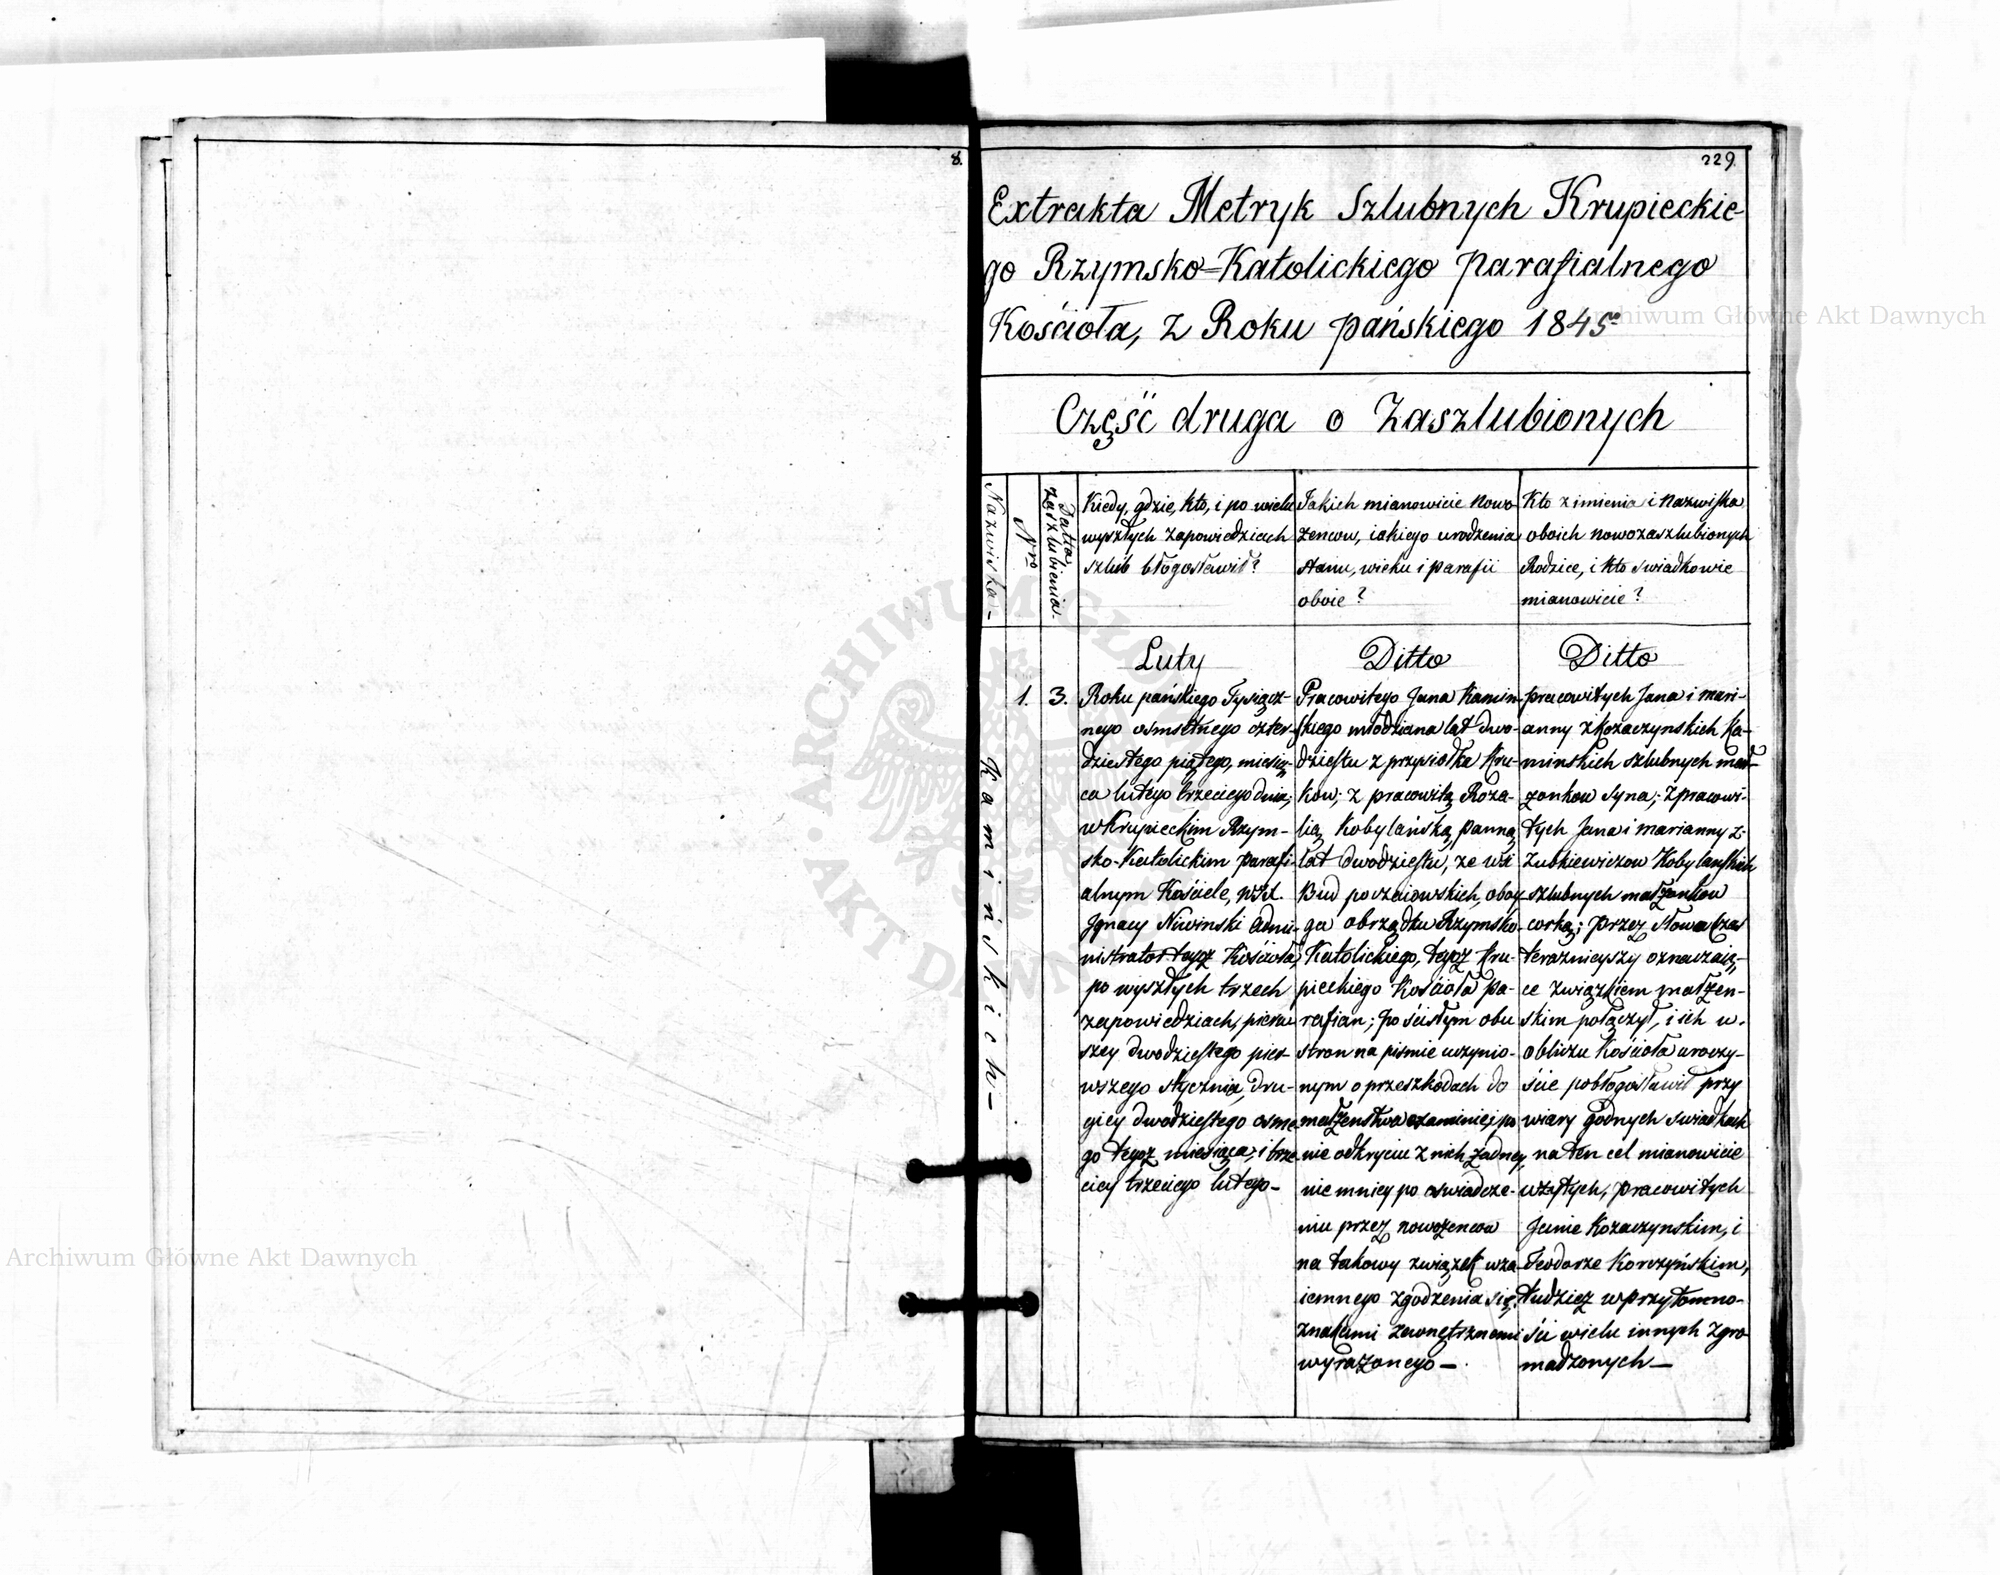 8.
229.
Extrakta Metryk Szlubnych Krupieckie-
go Rzymsko=Katolickiego parafialnego
Kościoła, z Roku pańskiego 1845
Część druga o Zaszlubionych
Nazwiska
Nro
Datta zaszlubienia
Kiedy, gdzie, kto, i po wielu
wyszłych zapowiedziach
szlub błogosławił?
Jakich mianowicie Nowo-
żencow, iakiego urodzenia
stanu, wieku i parafii
oboie?
Kto z imienia i Nazwiska
oboich nowozaszlubionych
Rodzice, i kto swiadkowie
mianowicie?
Kaminskich
1.
3.
Luty
Roku pańskiego Tysiącz-
nego osmsetnego czter-
dziestego piątego, miesią-
ca lutego trzeciego dnia,
w Krupieckim Rzym-
sko-Katolickim parafi-
alnym Kościele,
Ignacy Niwinski Admi-
nistrator tegoż Kościoła,
po wyszłych trzech
zapowiedziach, pierw
szey dwudziestego pier-
wszego stycznia, dru-
giey dwudziestego osme
go tegoż miesiąca, i trze-
ciey trzeciego lutego-
Ditto
Pracowitego Jana Kamin-
skiego młodziana lat dwu-
dziestu z przysiołka Kru-
kow; z pracowitą Roza-
lią Kobylańską panną
lat dwudziestu, ze wsi
Bud oboy-
ga obrządku Rzymsko-
Katolickiego, tegoż Kru-
pieckiego Kościoła pa-
rafian; po ścisłym obu
stron na pismie uczynio-
nym o przeszkodach do
małżeństwa examinie, i po
nie odkryciu z nich żadney,
nie mniey po oswiadcze-
niu przez nowożencow
na takowy związek wza-
iemnego zgodzenia się,
znakami zewnętrznemi
wyrażonego-
Ditto
pracowitych Jana i mari-
anny z Kozaczynskich Ka-
minskich szlubnych mał-
żonkow syna; z pracowi-
tych Jana i marianny z
Zubkiewiczow Kobylanskich
szlubnych małżonkow
corką; przez słowa czas
teraznieyszy oznaczaią-
ce związkiem małżen-
skim połączył, i ich w
obliczu Kościoła uroczy-
ście pobłogosławił przy
wiary godnych swiadkach
na ten cel mianowicie
wziętych, pracowitych
Janie Kozaczynskim, i
Teodorze Korczyńskim,
tudzież w przytomno-
ści wielu innych zgro
madzonych-
Archiwum Główne Akt Dawnych
Archiwum Główne Akt Dawnych
ARCHIWUM GŁÓWNE AKT DAWNYCH